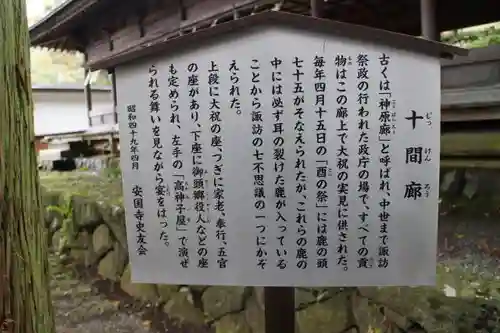 十間廊
じっけんろう
古くは「神原廊」と呼ばれ、中世まで諏訪
祭政の行われた政庁の場で、すべての貢
物はこの廊上で大祝の実見に供された。
毎年四月十五日の「酉の祭」には鹿の頭
七十五がそなえられたが、これらの鹿の
中には必ず耳の裂けた鹿が入っている
ことから諏訪の七不思議の一つにかぞ
えられた。
上段に大祝の座、つぎに家老、奉行、五官
の座があり、下座に御頭郷役人などの座
も定められ、左手の「高神子屋」で演ぜ
られる舞いを見ながら宴をはった。
昭和四十九年四月
安国寺史友会